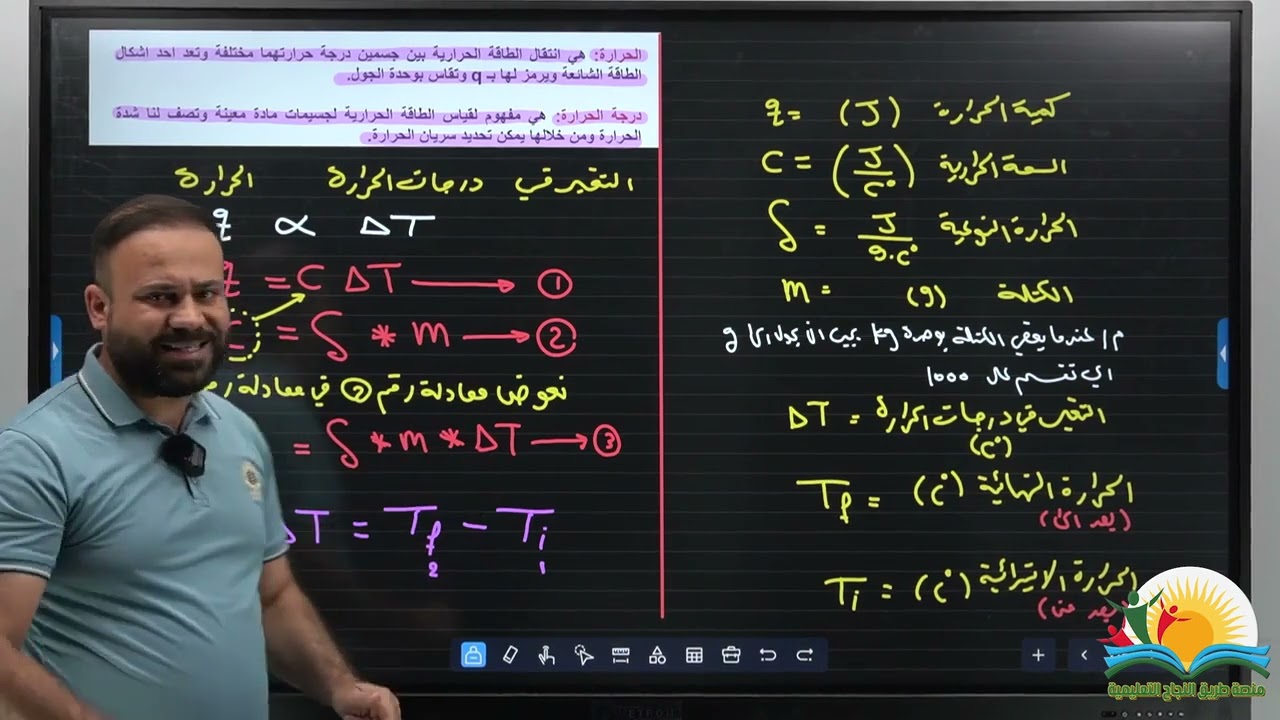 الحرارة: هي انتقال الطاقة الحرارية بين جسمين درجة حرارتهما مختلفة وتعد احد اشكال
الطاقة الشائعة ويرمز لها بـ q وتقاس بوحدة الجول.
درجة الحرارة: هي مفهوم لقياس الطاقة الحرارية لجسيمات مادة معينة وتصف لنا شدة
الحرارة ومن خلالها يمكن تحديد سريان الحرارة.
التغير في درجات الحرارة الحرارة
q ∝ ΔT
q = C ΔT → ①
C = ʃ * m → ②
نعوض معادلة رقم ② في معادلة
= ʃ * m * ΔT → ③
ΔT = Tf - Ti
2 1
كمية الحرارة (J) = q
السعة الحرارية (J/C°) = C
الحرارة النوعية J/g.C° = ʃ
الكتلة (g) = m
م/ عندما يعطي الكتلة بوحدة kg يجب ان يحول الى g
اي تقسم على 1000
التغير في درجات الحرارة = ΔT
(C°)
الحرارة النهائية (C°) = Tf
(بعد الى)
الحرارة الابتدائية (C°) = Ti
(بعد من)
منصة طريق النجاح التعليمية